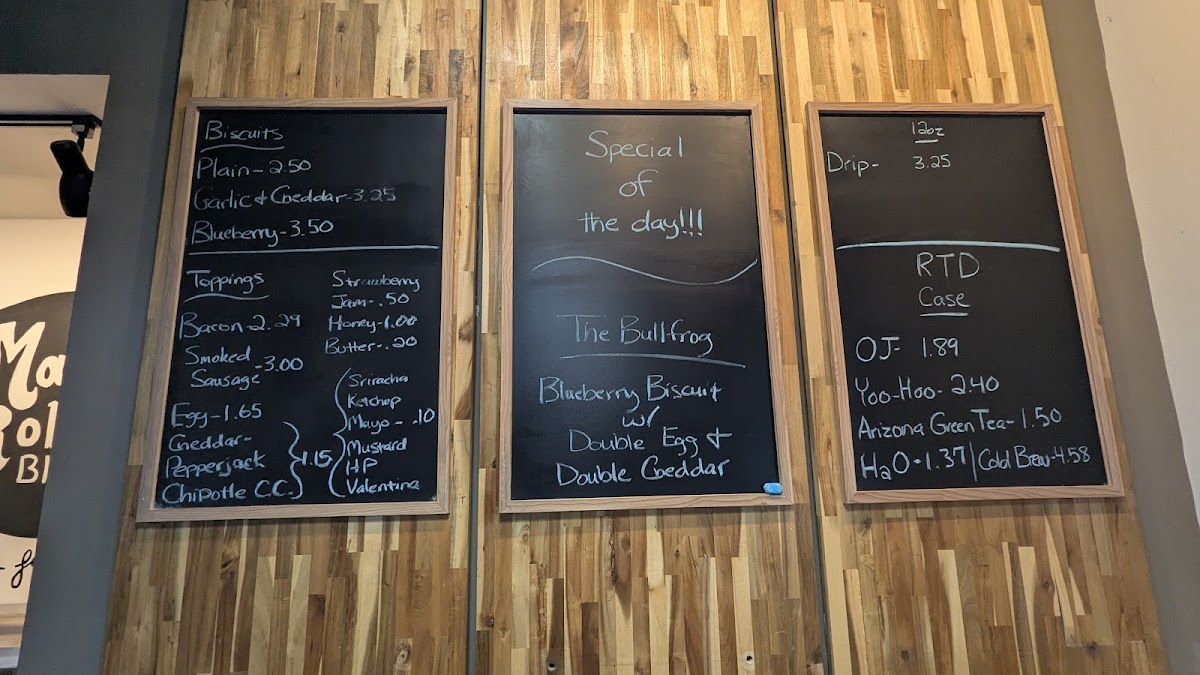 Biscuits
Plain - 2.50
Garlic & Cheddar - 3.25
Blueberry - 3.50
Toppings
Bacon - 2.29
Smoked
Sausage - 3.00
Egg - 1.65
Cheddar -
Pepperjack
Chipotle C.C. 1.15
Strawberry
Jam - .50
Honey - 1.00
Butter - .20
Sriracha
Ketchup
Mayo - .10
Mustard
HP
Valentina
Special
of
the day!!!
The Bullfrog
Blueberry Biscuit
w/
Double Egg &
Double Cheddar
12oz
Drip - 3.25
RTD
Case
OJ - 1.89
Yoo-Hoo - 2.40
Arizona Green Tea - 1.50
H2O - 1.37 | Cold Brew - 4.58
Ma
Bl